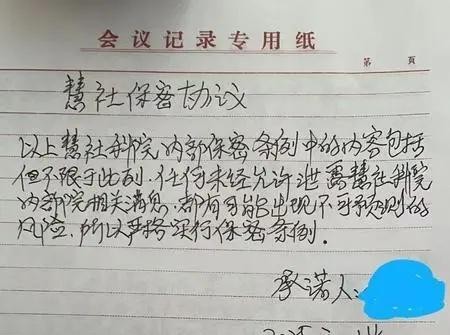 会议记录专用纸
第 頁
慧社保密协议
以上慧社科院内部保密条例中的内容包括
但不限于此列.任何未经允许泄露慧社科院
内部院相关消息.都有可能出现不可预测的
风险.所以严格实行保密条例.
承诺人: